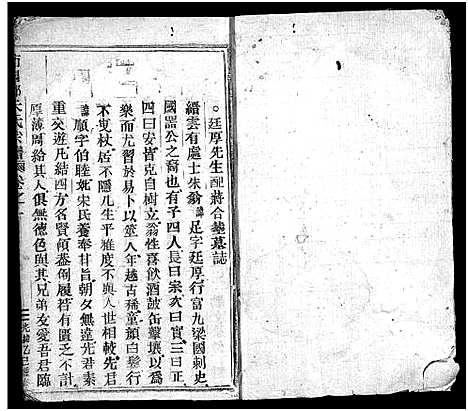 ○廷厚先生配蔣合塟墓誌
縉雲有處士朱翁諱足字廷厚行富九梁國刺史
國器公之裔也有子四人長曰崇次曰實三曰正
四曰安皆克自樹立翁性喜飲酒鼓缶擊壤以爲
樂而尤習於易卜以筮人年越古稀童顏白髮行
不曳杖居不隱几生平雅度不與人世相較先君
諱順字伯睦娶宋氏養奉甘旨朝夕無違先君素
重交遊凡結四方名賢傾盍倒履若有匱乏不計
厚薄周給其人俱無德色與其兄弟友愛吾君臨
宗譜 卷之一